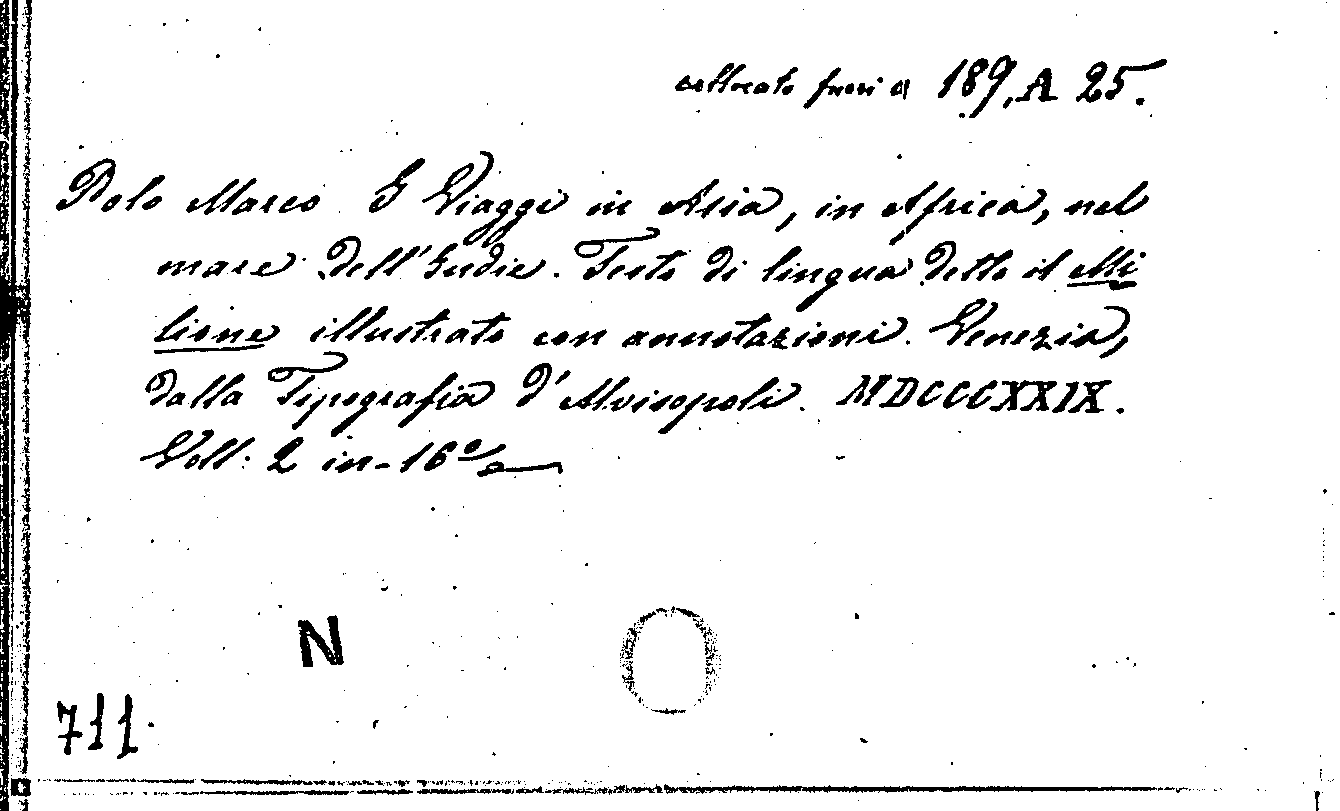 collocato fuori a 189, A 25.
Polo Marco I Viaggi in Asia, in Africa, nel
mare dell'Indie. Testo di lingua detto il Mi
lione illustrato con annotazioni. Venezia,
dalla Tipografia d'Alvisopoli. MDCCCXXIX.
Voll: 2 in-16°
N
711.